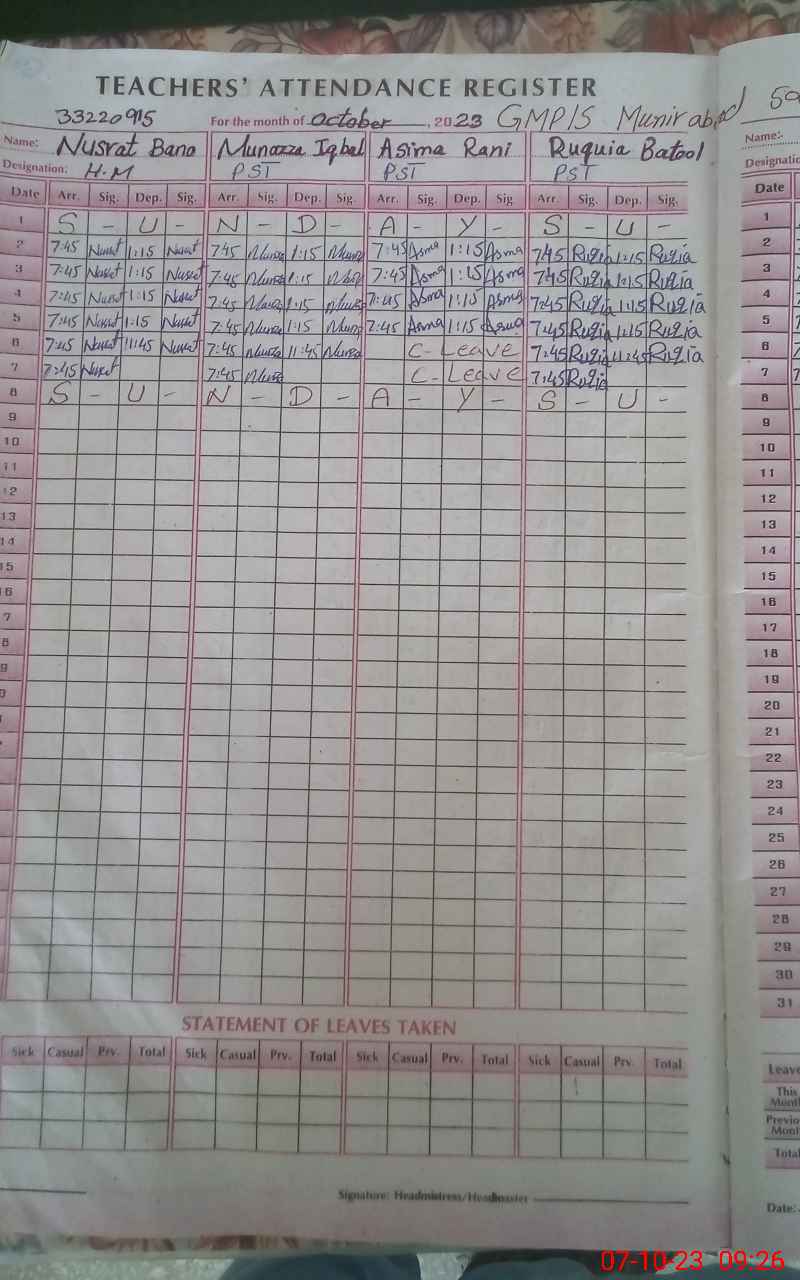 TEACHERS' ATTENDANCE REGISTER
33220915 For the month of October, 2023 GMP/S Munirabad
Name: Nusrat Bano Munazza Iqbal Asima Rani Ruquia Batool Name:
Designation: H.M PST PST PST
Date Arr. Sig. Dep. Sig. Arr. Sig. Dep. Sig. Arr. Sig. Dep. Sig Arr. Sig. Dep. Sig. Date
1 S - U - N - D - A - Y - S - U - 1
2 7:45 Nusrat 1:15 Nusrat 7:45 1:15 7:45 Asma 1:15 Asma 7:45 Ruqia 1:15 Ruqia 2
3 7:45 Nusrat 1:15 Nusrat 7:45 1:15 7:45 Asma 1:15 Asma 7:45 Ruqia 1:15 Ruqia 3
4 7:45 Nusrat 1:15 Nusrat 7:45 1:15 7:45 Asma 1:15 Asma 7:45 Ruqia 1:15 Ruqia 4
5 7:45 Nusrat 1:15 Nusrat 7:45 1:15 7:45 Asma 1:15 Asma 7:45 Ruqia 1:15 Ruqia 5
6 7:45 Nusrat 11:45 Nusrat 7:45 11:45 C - Leave 7:45 Ruqia 11:45 Ruqia 6
7 7:45 Nusrat 7:45 C - Leave 7:45 Ruqia 7
8 S - U - N - D - A - Y - S - U - 8
9 9
10 10
11 11
12 12
13 13
14 14
15 15
16 16
7 17
8 18
9 19
20
21
22
23
24
25
26
27
28
29
30
31
STATEMENT OF LEAVES TAKEN
Sick Casual Prv. Total Sick Casual Prv. Total Sick Casual Prv. Total Sick Casual Prv. Total
Leave
This
Month
Previo
Mont
Total
Signature: Headmistress/Headmaster
Date:
07-10-23 09:26